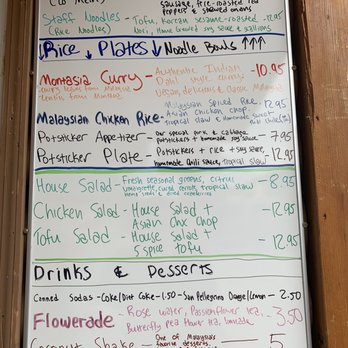 (Lo Mein)
sausage, fire-roasted red
peppers & shaved onions
Staff Noodles - Tofu, Korean sesame-roasted -12.95
(Rice Noodles) Nori, Home brewed soy sauce & scallions
↓ Rice ↓ Plates ↓ Noodle Bowls ↑↑↑
Montasia Curry - Authentic Indian - 10.95
Dahl style curry
Vegan, delicious &
Malaysian Chicken Rice - Malaysian Spiced Rice, 12.95
Asian chicken chop,
tropical slaw & homemade sweet
Potsticker Appetizer - Our special pork & cabbage 7.95
potstickers + homemade soy sauce
Potsticker Plate - Potstickers + rice + soy sauce, - 12.95
homemade chili sauce, tropical slaw
House Salad - Fresh seasonal greens, citrus - 8.95
vinaigrette, tropical slaw
Chicken Salad - House Salad + - 12.95
Asian Chx Chop
Tofu Salad - House Salad + - 12.95
5 spice tofu
Drinks & Desserts
Canned Sodas - Coke/Diet Coke - 1.50 - San Pellegrino Orange/Lemon - 2.50
Flowerade - Rose water, Passionflower tea, - 3.50
Butterfly pea flower tea, lemonade
Coconut Shake - One of Malaysia's 5
favorite desserts